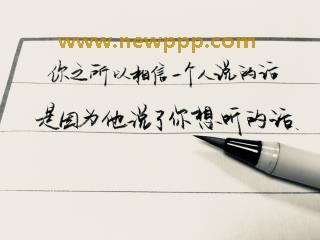 www.newppp.com
你之所以相信一个人说的话
是因为他说了你想听的话、